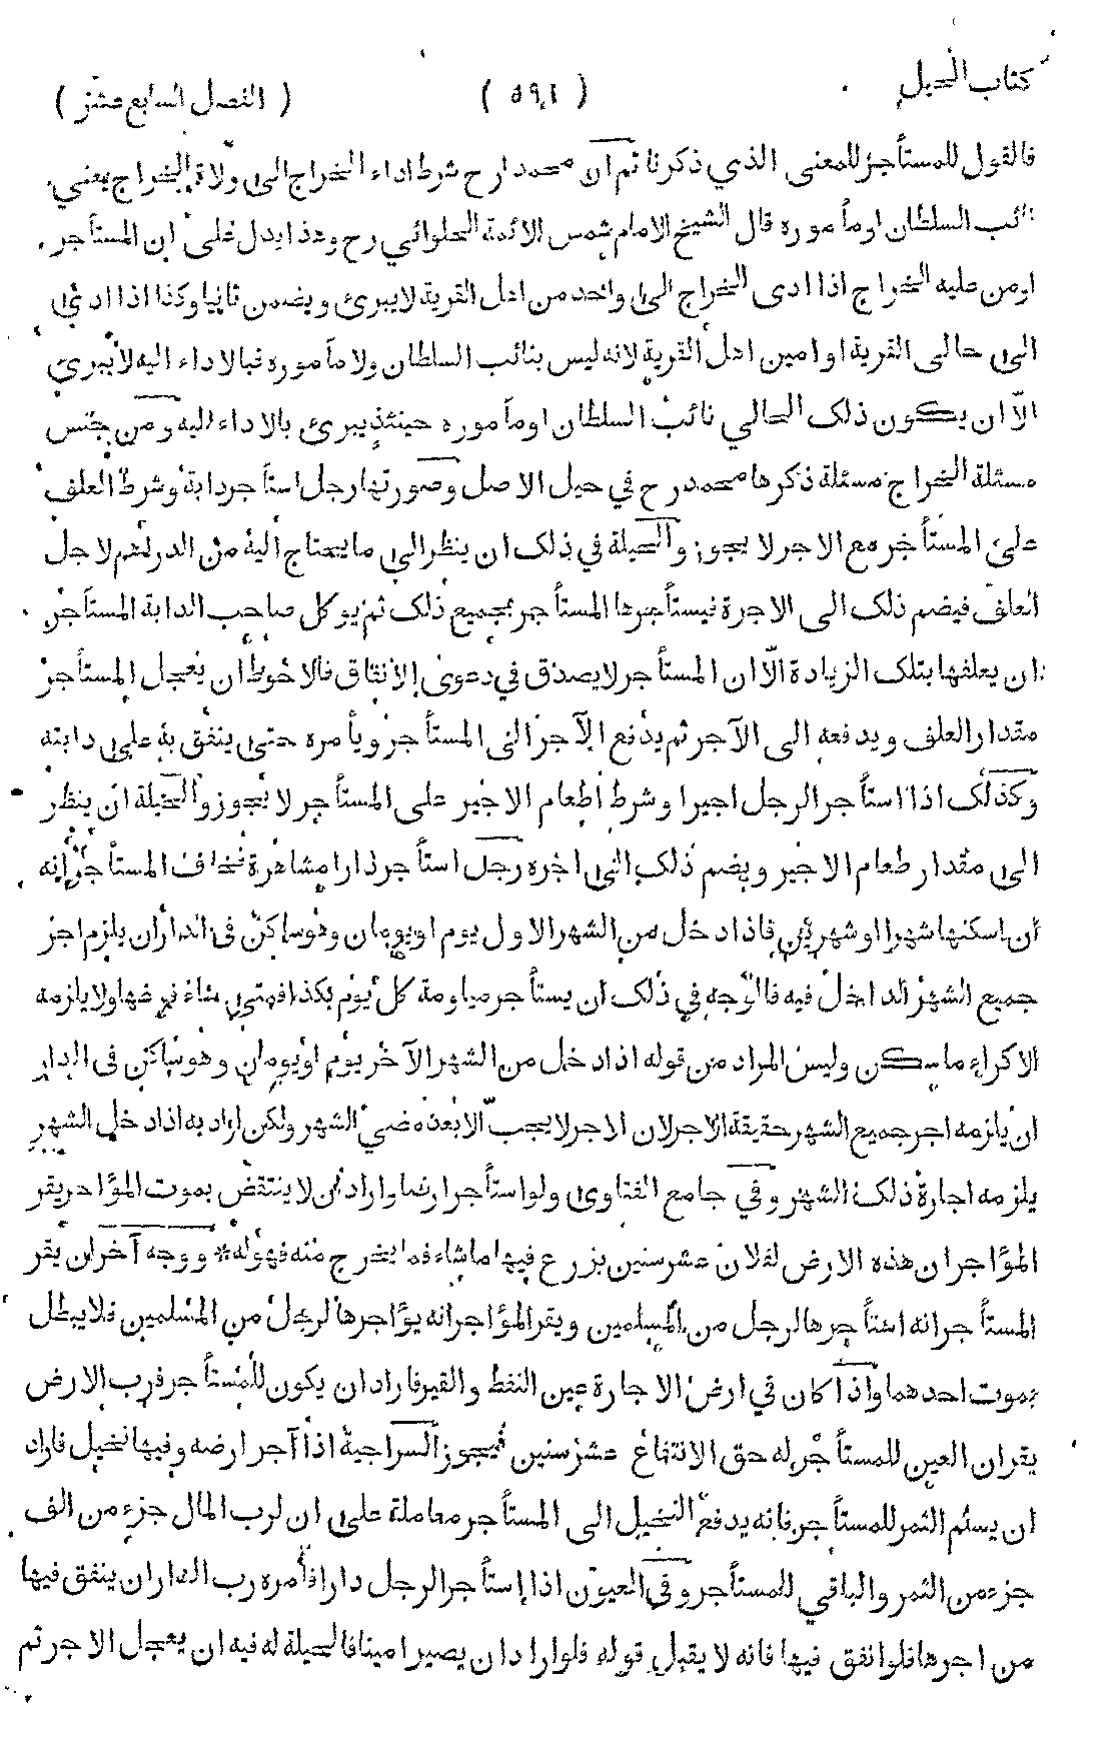 كتاب الحيل ( ٥٩١ ) ( الفصل السابع عشر )
فالقول للمستأجر للمعنى الذي ذكرنا ثم ان محمدا رح شرط اداء الخراج الى ولاة الخراج يعني
نائب السلطان او مأموره قال الشيخ الامام شمس الائمة الحلوائي رح وهذا يدل على ان المستأجر
او من عليه الخراج اذا ادى الخراج الى واحد من اهل القرية لا يبرئ ويضمن ثانيا وكذا اذا ادى
الى حالي القرية او امين اهل القرية لانه ليس بنائب السلطان ولا مأموره فبالاداء اليه لا يبرئ
الّا ان يكون ذلك الحالي نائب السلطان او مأموره حينئذ يبرئ بالاداء اليه ومن جنس
مسئلة الخراج مسئلة ذكرها محمد رح في حيل الاصل وصورتها رجل استأجر دابة وشرط العلف
على المستأجر مع الاجر لا يجوز والحيلة في ذلك ان ينظر الى ما يحتاج اليه من الدرهم لاجل
العلف فيضم ذلك الى الاجرة فيستأجرها المستأجر بجميع ذلك ثم يوكل صاحب الدابة المستأجر
ان يعلفها بتلك الزيادة الّا ان المستأجر لا يصدق في دعوى الانفاق فالاحوط ان يعجل المستأجر
مقدار العلف ويدفعه الى الآجر ثم يدفع الآجر الى المستأجر ويأمره حتى ينفق به على دابته
وكذلك اذا استأجر الرجل اجيرا وشرط اطعام الاجير على المستأجر لا يجوز والحيلة ان ينظر
الى مقدار طعام الاجير ويضم ذلك الى اجره رجل استأجر دارا مشاهرة فخاف المستأجر انه
ان اسكنها شهرا او شهرين فاذا دخل من الشهر الاول يوم او يومان وهو ساكن في الدار ان يلزم اجر
جميع الشهر الداخل فيه فالوجه في ذلك ان يستأجر مياومة كل يوم بكذا فمتى شاء فرغها ولا يلزمه
الا كراء ما سكن وليس المراد من قوله اذا دخل من الشهر الآخر يوم او يومان وهو ساكن في الدار
ان يلزمه اجر جميع الشهر حقيقة الاجر لان الاجر لا يجب الّا بعد مضي الشهر ولكن اراد به اذا دخل الشهر
يلزمه اجارة ذلك الشهر وفي جامع الفتاوى ولو استأجر ارضا واراد ان لا ينتقض بموت المؤاجر يقر
المؤاجر ان هذه الارض لفلان عشر سنين يزرع فيها ما شاء فما يخرج منه فهو له * ووجه آخر ان يقر
المستأجر انه استأجرها لرجل من المسلمين ويقر المؤاجر انه يؤاجرها لرجل من المسلمين فلا يبطل
بموت احدهما واذا كان في ارض الاجارة عين النفط والقير فاراد ان يكون للمستأجر فرب الارض
يقر ان العين للمستأجر له حق الانتفاع عشر سنين فيجوز السراجية اذا آجر ارضه وفيها نخيل فاراد
ان يسلم الثمر للمستأجر فانه يدفع النخيل الى المستأجر معاملة على ان لرب المال جزء من الف
جزء من الثمر والباقي للمستأجر وفي العيون اذا استأجر الرجل دارا فأمره رب الدار ان ينفق فيها
من اجرها فلو انفق فيها فانه لا يقبل قوله فلو اراد ان يصير امينا فالحيلة له فيه ان يعجل الاجر ثم